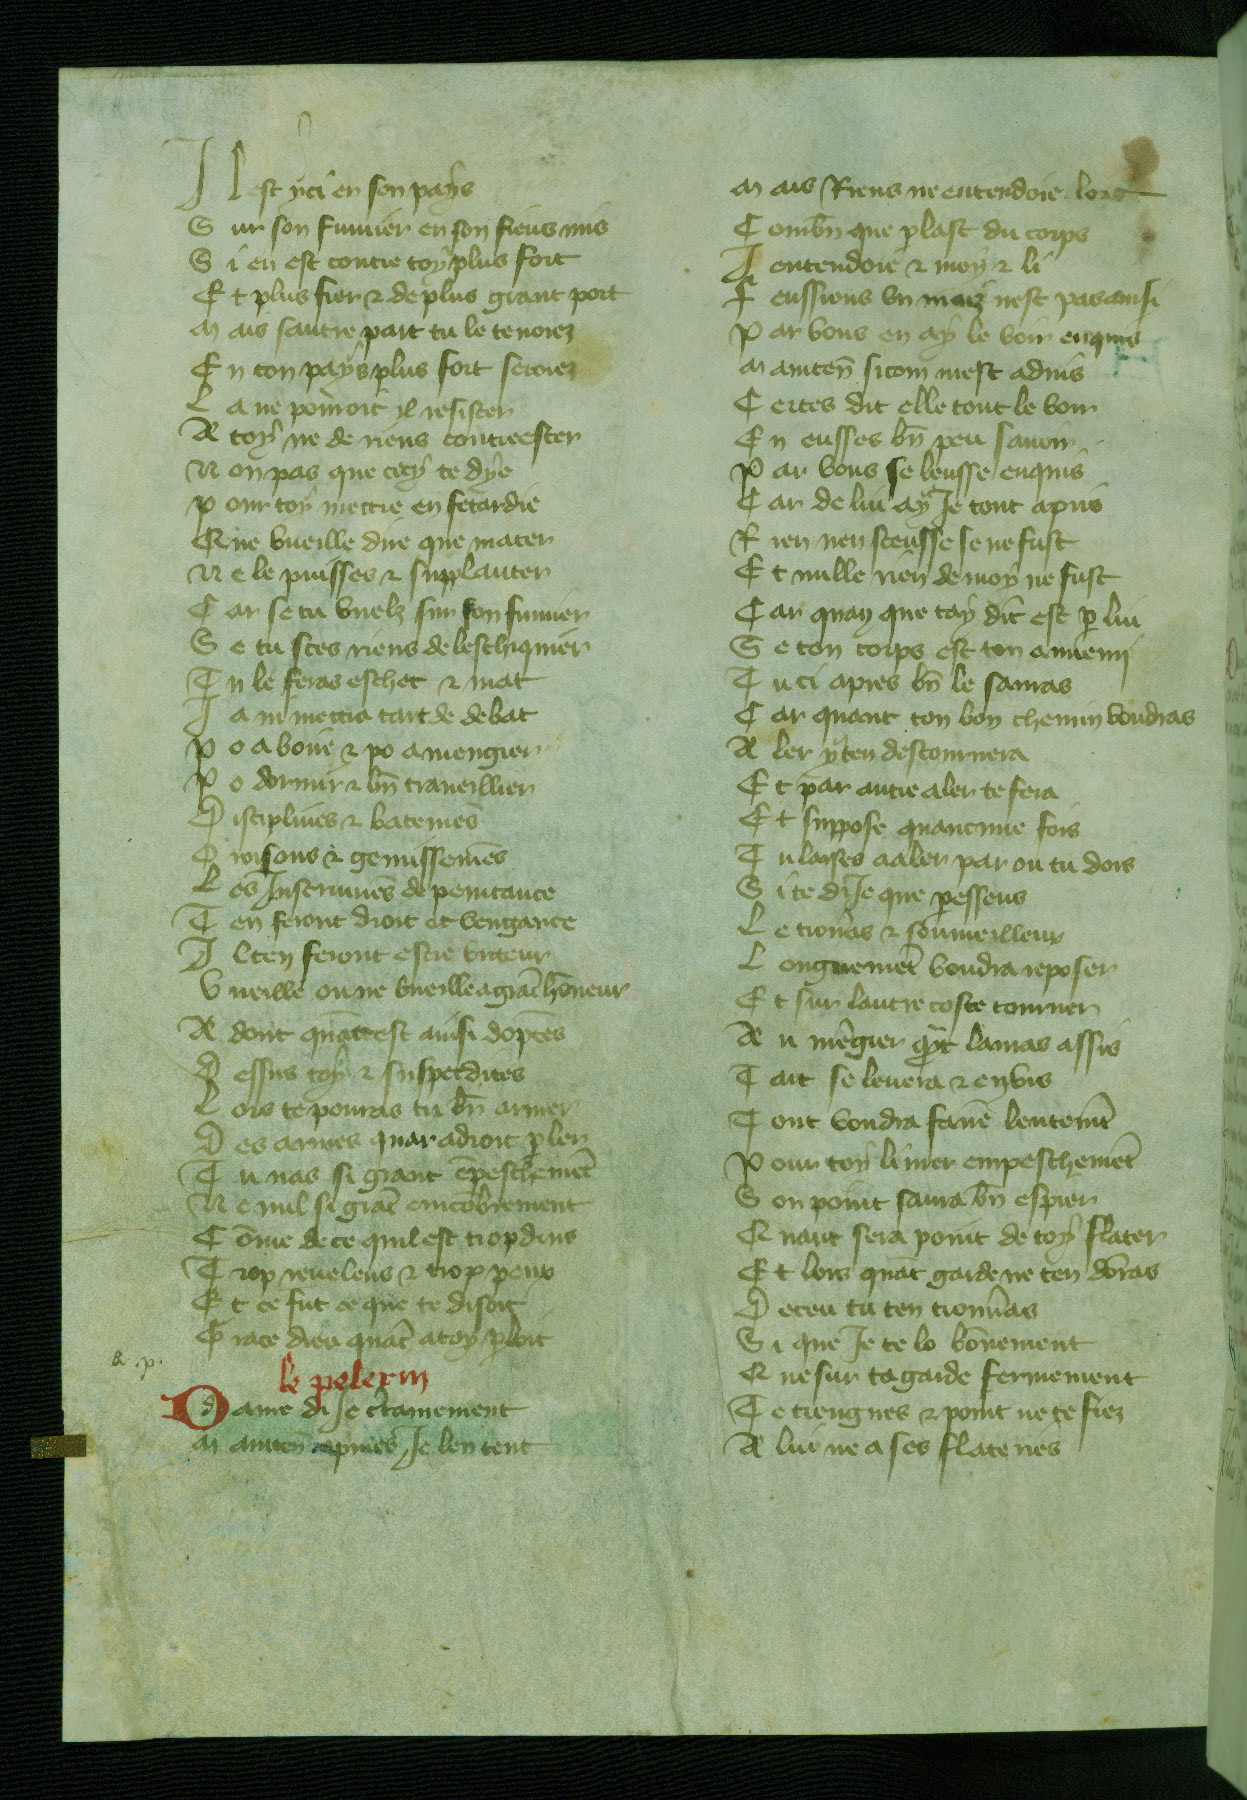 Il est yci en son pays
Sur son fumier en son fiens mis
Si en est contre toy plus fort
Et plus fier & de plus grant port
Mais sautre part tu le tenoiez
En ton pays plus fort seroiez
La ne porroit yl resister
A toy ne de riens contreester
Non pas que cecy te dye
Pour toy mettre en fetardie
Que vueille dire que mater
Ne le puisses & supplanter
Car se tu vuelz sur son fumier
Se tu sces riens de leschiquier
Tu le feras eschec & mat
Ja ni mettra tart de debat
Po a boire & po a mengier
Po dormir & bn̄ traveillier
Disciplines & batemēs
Oroisons & gemissemēs
Les Instrumēs de penitance
Ten feront droit et vengance
Il ten feront estre victeur
Vueille ou ne vueille a grāt hōneur
A dont quāt est ainsi doptes
Dessus toy & suspeditēs
Lors te pourras tu bn̄ armer
Des armes quar a droit ꝑler
Tu nas si grant ēpeschemēt
Ne nul si grāt encōbrement
Cōme de ce quil est trop drus
Trop reveleus & trop peus
Et ce fut ce que te disoit
Grace dieu quāt a toy ꝑloit
& .p.
le pelerin
Dame di Je clamement
Maintenāt apmes Je len tent
Mais Riens ne entendoie lors
Combn̄ que ꝑlast du corps
Jentendoie & moy & li
Feussions vn maiz nest pas ainsi
Par vous en ay le voir enquis
Mainten̄ sicom mest advis
Certes dit elle tout le voir
En eusses bn̄ peu savoir
Par vous se leusse enquis
Car de lui ay Je tout apris
Rien nen sceusse se ne fust
Et nulle rien de moy ne fust
Car quay que tay dit est ꝑ lui
Se ton corps est ton anemi
Tu ci apres bn̄ le sauras
Car quant ton bon chemin voudras
Aler yl ten destournera
Et par autre aler te fera
Et suppose quaucune fois
Tu laises aaler par ou tu dois
Si te di Je que ꝑesseus
Le trouvˀas & sommeilleux
Longuemēt voudra reposer
Et sur lautre coste tourner
Au mēgier qāt lauras assis
Tart se levera & envis
Tout voudra faire lentemēt
Pour toy livrer empeschemēt
Son point saura bn̄ espier
Quant sera point de toy flater
Et lors quāt garde ne ten dōras
Deceu tu ten trouvˀas
Si que Je te lo bonement
Que sur ta garde fermement
Te tiengnes & point ne te fiez
A lui ne a ses flateries